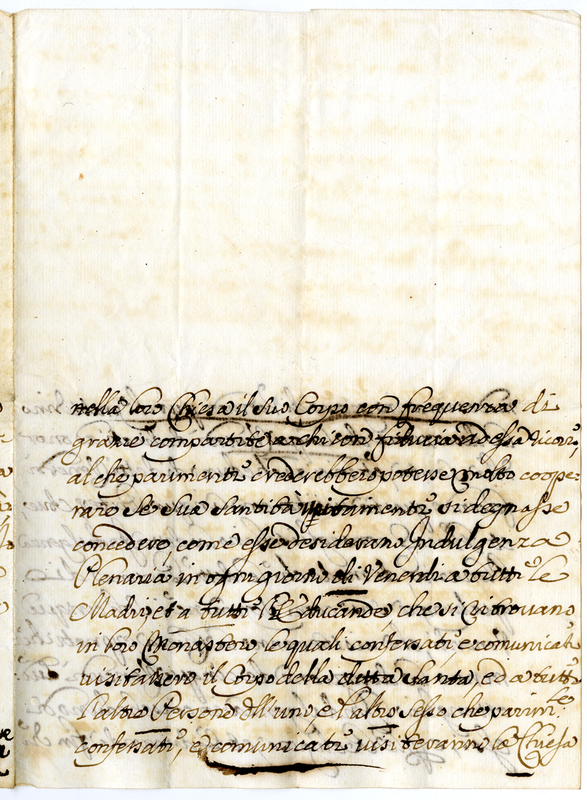 nella loro Chiesa il suo Corpo con frequenza di
grazie compartite a chi con fiducia ad essa ricorr,
al che parimenti crederebbero potesse molto coope-
rare se Sua Santità si degnasse
concedere, come esse desiderano Indulgenza
Plenaria in ogni giorno di Venerdi a tutte le
Madri, et a tutte l'Educande, che si ritrovano
in loro Monastero le quali confessate e comunicate
visiteranno il Corpo della detta Santa, ed a tutte
l'altre Persone dell'uno, e l'altro sesso che parim.te
confessati, e comunicati visiteranno la Chiesa